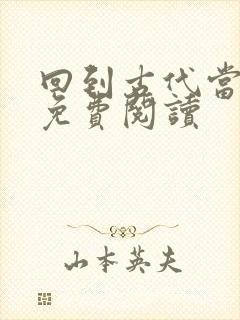 回到古代當
免費閱讀
山本英夫